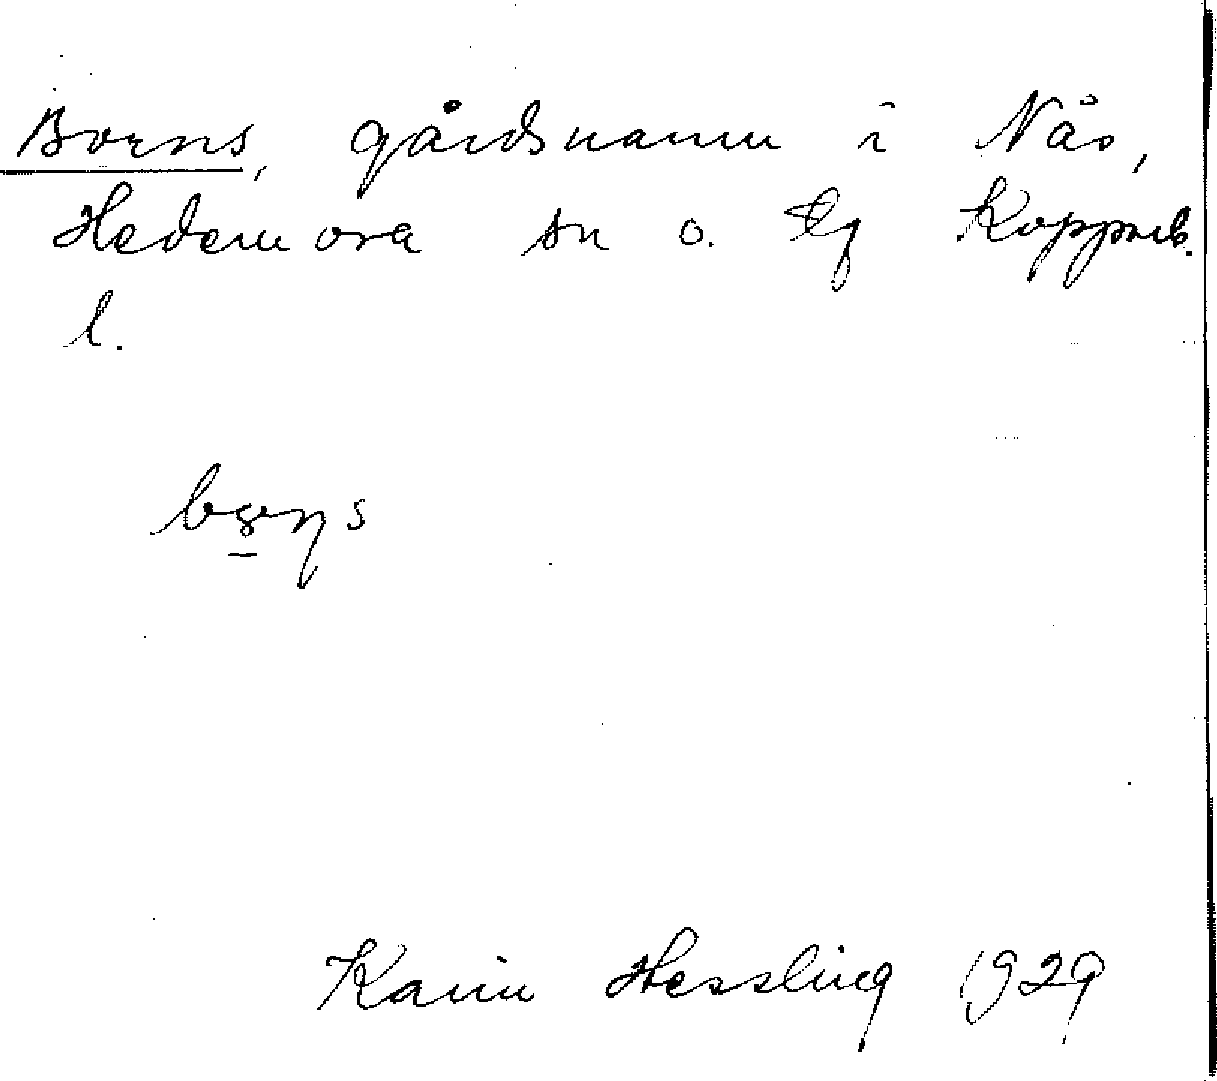 Borns, gårdsnamn i Nås,
Hedemora sn o. tg Kopparb.
l.
Karin Hessling 1929